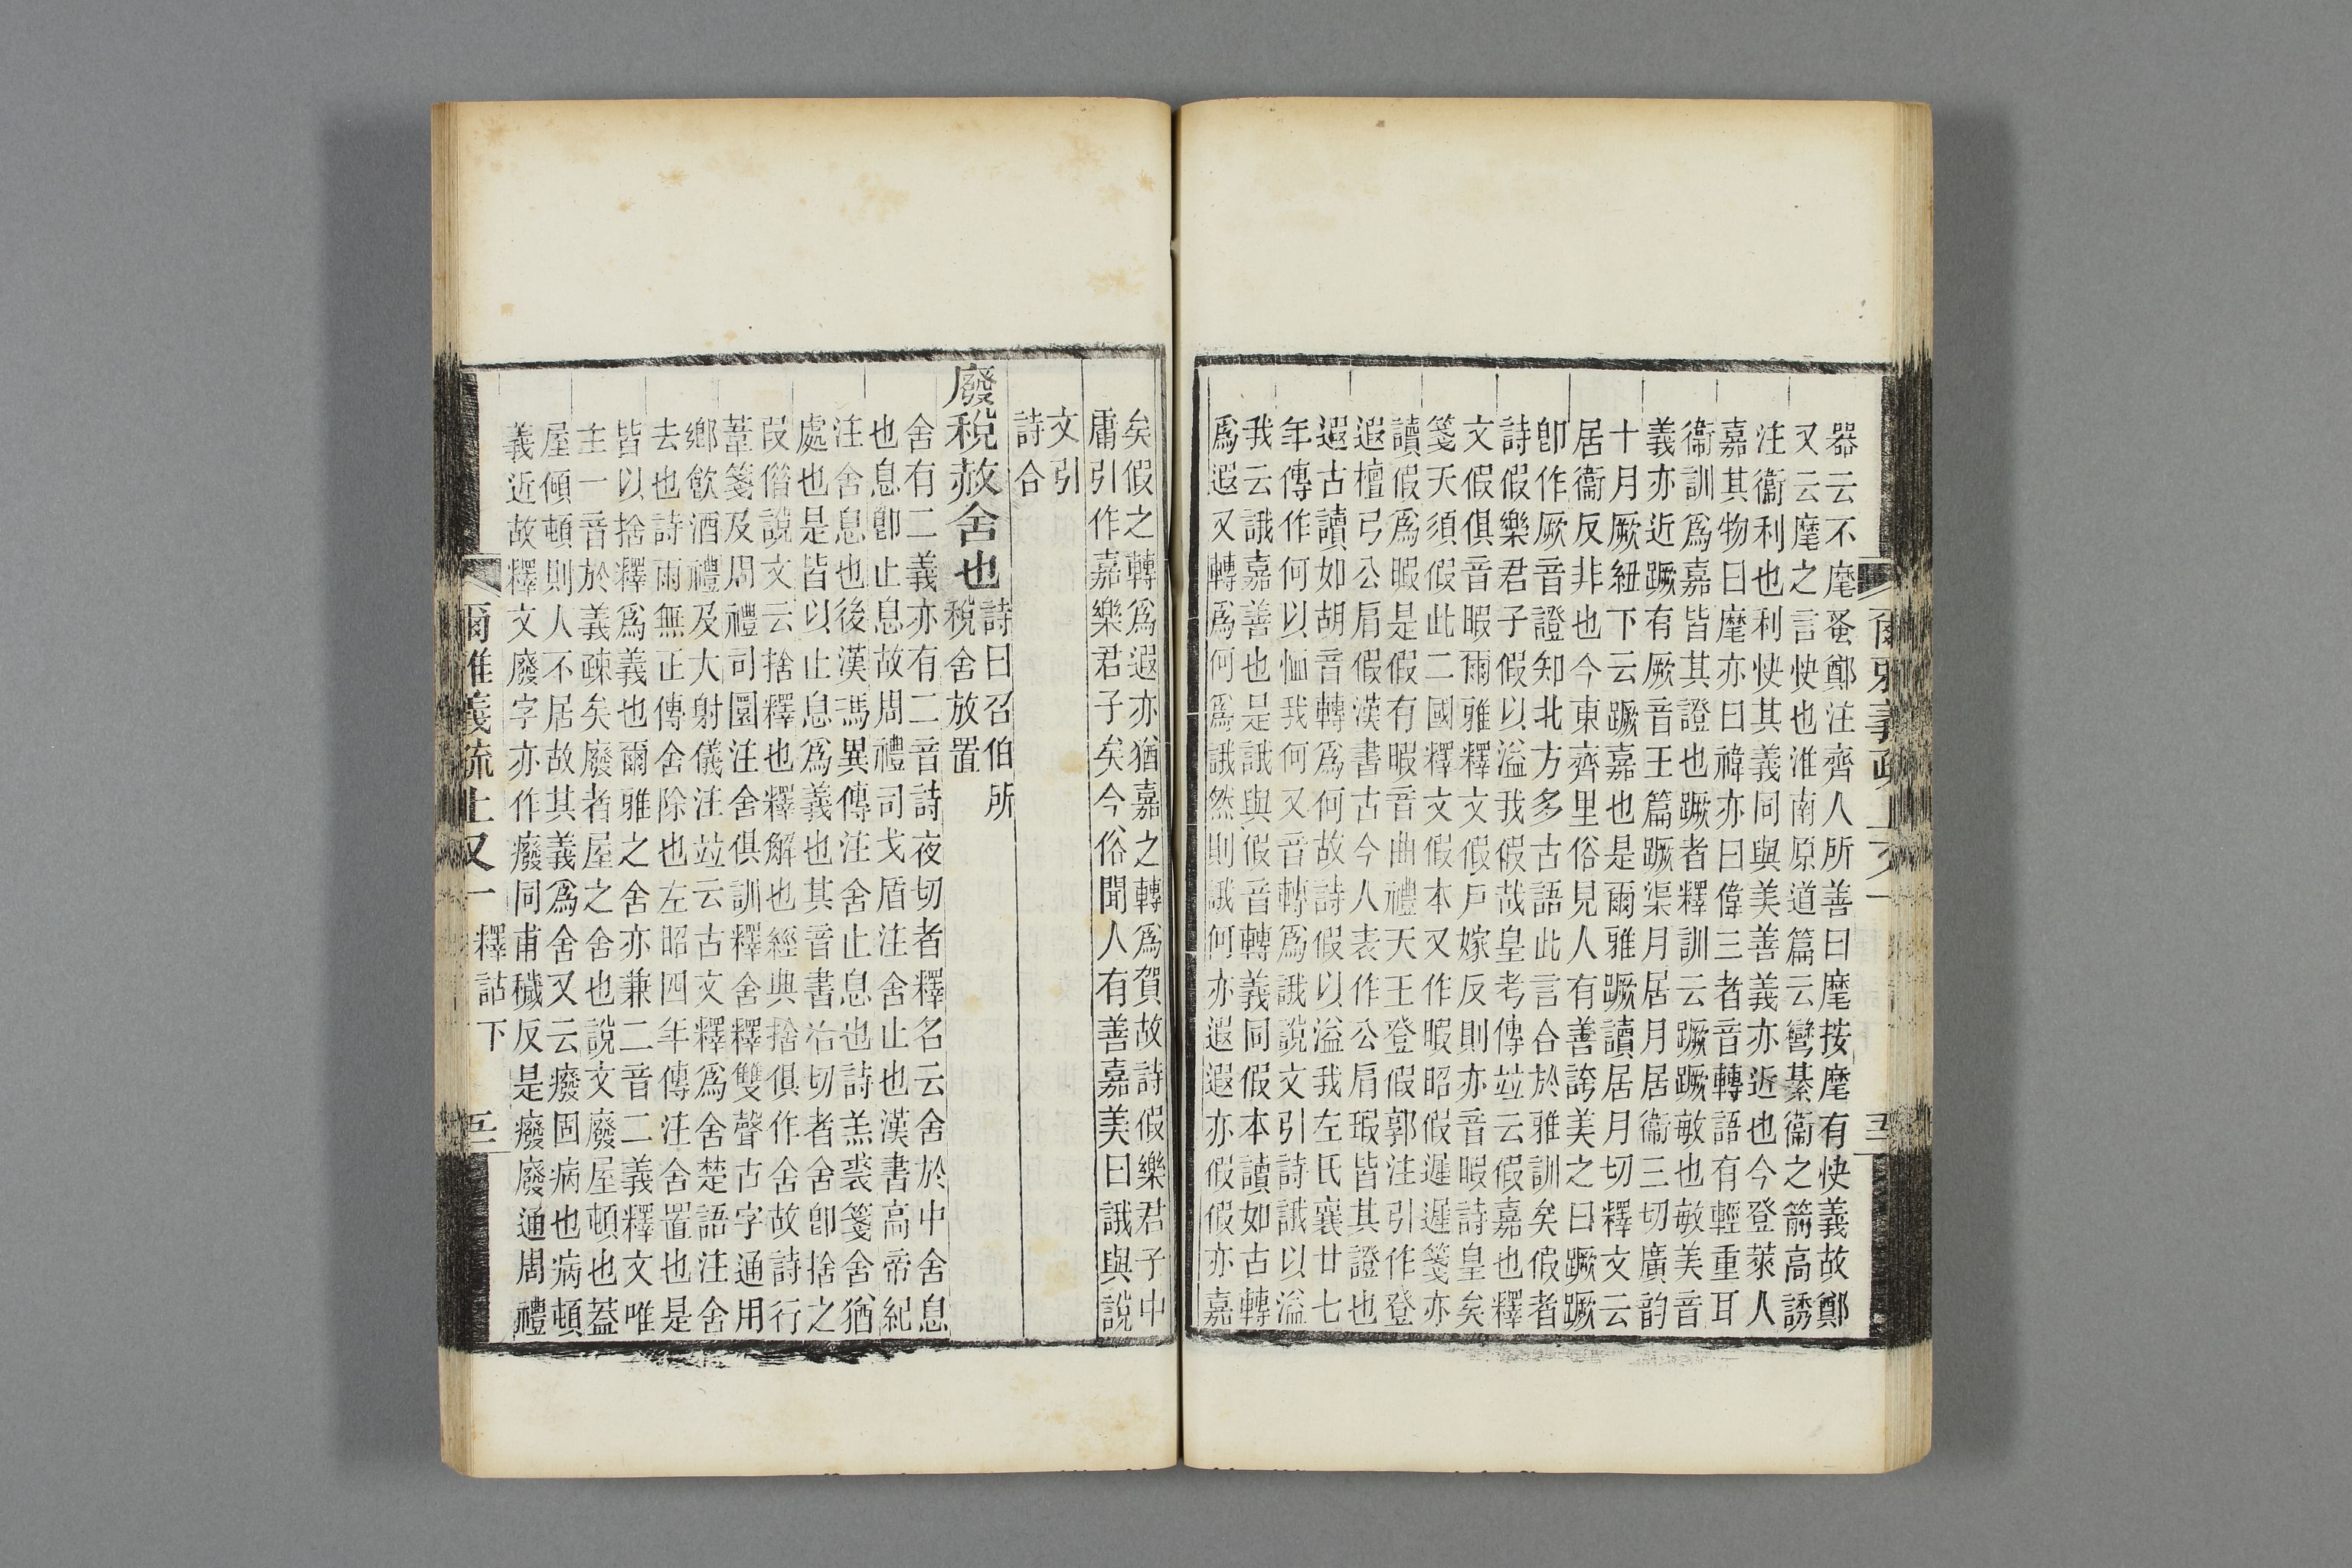 器云不麾蚤鄭注齊人所善曰麾按麾有快義故鄭
又云麾之言快也淮南原道篇云彎棊衞之箭高誘
注衞利也利快其義同與美善義亦近也今登萊人
嘉其物曰麾亦曰禕亦曰偉三者音轉語有輕重耳
衞訓爲嘉皆其證也蹶者釋訓云蹶蹶敏也敏美音
義亦近蹶有厥音王篇蹶渠月居月居衞三切廣韵
十月厥紐下云蹶嘉也是爾雅蹶讀居月切釋文云
居衞反非也今東齊里俗見人有善誇美之曰蹶蹶
卽作厥音證知北方多古語此言合於雅訓矣假者
詩假樂君子假以溢我假哉皇考傳竝云假嘉也釋
文假俱音暇爾雅釋文假戶嫁反則亦音暇詩皇矣
箋天須假此二國釋文假本又作暇昭假遲遲箋亦
讀假爲暇是假有暇音曲禮天王登假郭注引作登
遐檀弓公肩假漢書古今人表作公肩瑕皆其證也
遐古讀如胡音轉爲何故詩假以溢我左氏襄廿七
年傳作何以恤我何又音轉爲誐說文引詩誐以溢
我云誐嘉善也是誐與假音轉義同假本讀如古轉
爲遐又轉爲何爲誐然則誐何亦遐遐亦假假亦嘉
矣假之轉爲遐亦猶嘉之轉爲賀故詩假樂君子中
庸引作嘉樂君子矣今俗聞人有善嘉美曰誐與說
文引
詩合
廢稅赦舍也
詩曰召伯所
稅舍放置
舍有二義亦有二音詩夜切者釋名云舍於中舍息
也息卽止息故周禮司戈盾注舍止也漢書高帝紀
注舍息也後漢馮異傳注舍止息也詩羔裘箋舍猶
處也是皆以止息爲義也其音書冶切者舍卽捨之
叚偺說文云捨釋也釋解也經典捨俱作舍故詩行
葦箋及周禮司圜注舍俱訓釋舍釋雙聲古字通用
鄉飲酒禮及大射儀注竝云古文釋爲舍楚語注舍
去也詩雨無正傳舍除也左昭四年傳注舍置也是
皆以捨釋爲義也爾雅之舍亦兼二音二義釋文唯
主一音於義疎矣廢者屋之舍也說文廢屋頓也蓋
屋傾頓則人不居故其義爲舍又云癈固病也病頓
義近故釋文廢字亦作癈同甫穢反是癈廢通周禮
爾雅義疏上又一 釋詁下